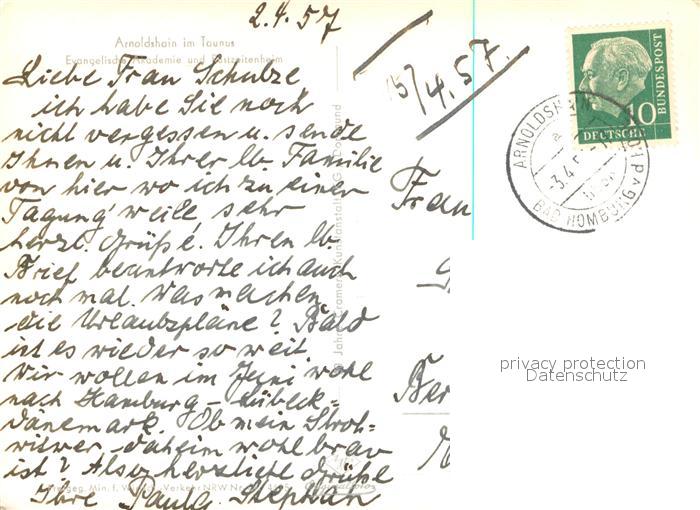 2.4.57
Arnoldshain im Taunus
Evangelische Akademie und Rüstzeitenheim
Liebe Frau Schulze
ich habe Sie noch
nicht vergessen u. sende
Ihnen u. Ihrer lb. Familie
von hier wo ich zu einer
Tagung weile, sehr
herzl. Grüße. Ihren lb.
Brief beantworte ich auch
noch mal. Was machen
die Urlaubspläne? Bald
ist es wieder so weit.
Wir wollen im Juni wohl
nach Hamburg - Lübeck -
Dänemark. Ob mein Stroh-
witwer daheim wohl brav
ist? Also herzliche Grüße
Ihre Paula Stephan
15/4.57.
Frau
Ber
10
DEUTSCHE
BUNDESPOST
ARNOLDSHAIN
-3.4.
BAD HOMBURG
privacy protection
Datenschutz